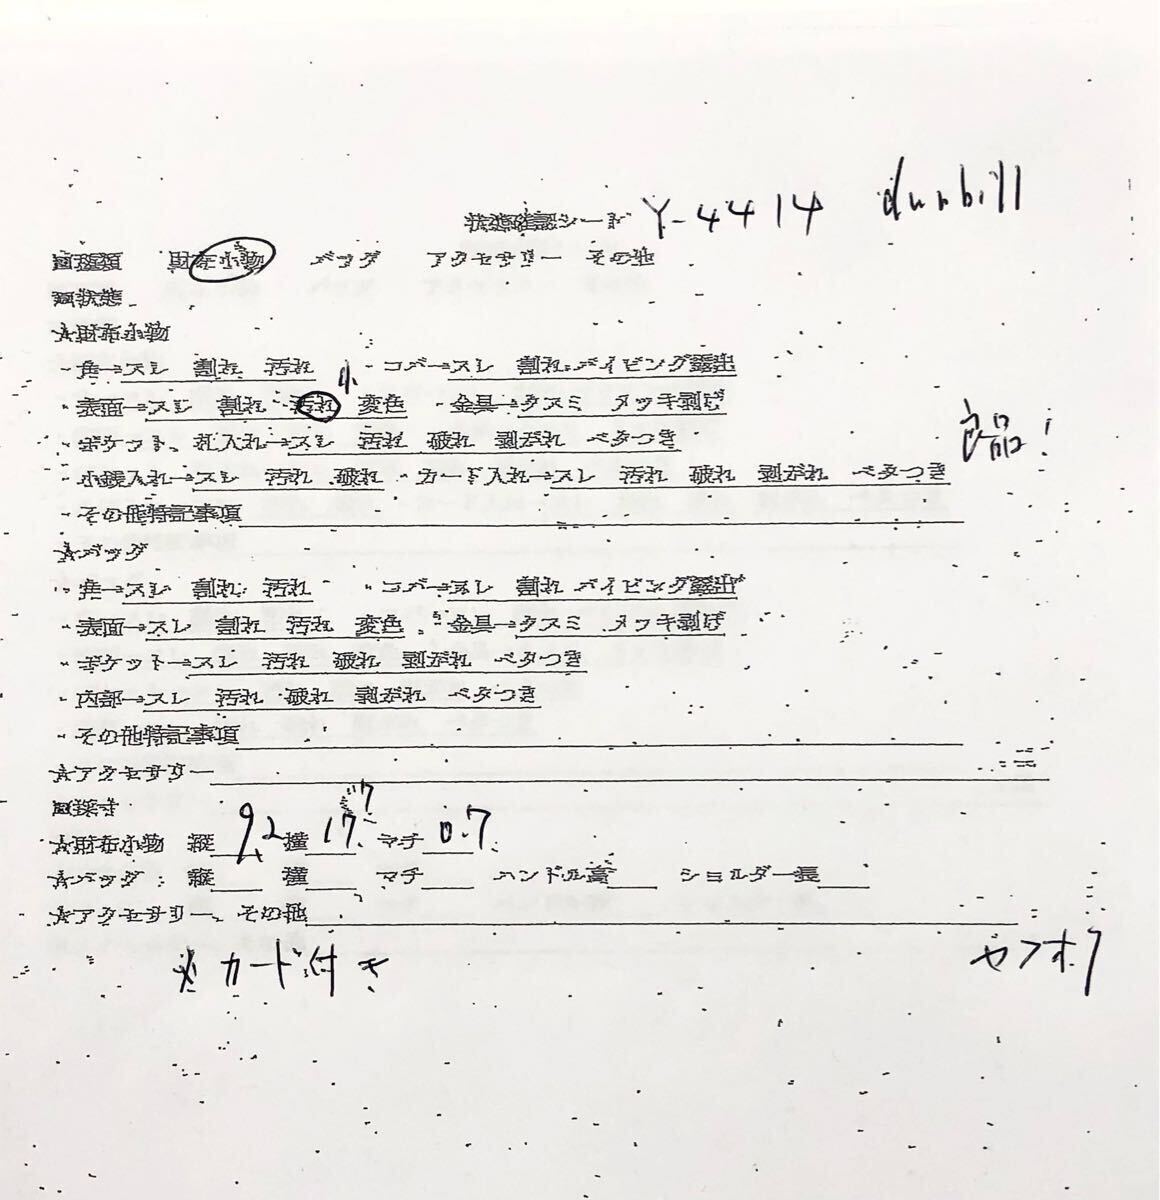 状態確認シート Y-4414 dunhill
■種類 財布小物 バッグ アクセサリー その他
■状態
☆財布小物
・角→スレ 割れ 汚れ ・コバ→スレ 割れ パイピング露出
小
・表面→スレ 割れ 汚れ 変色 ・金具→クスミ メッキ剥げ
・ポケット、札入れ→スレ 汚れ 破れ 剥がれ ベタつき
良品！
・小銭入れ→スレ 汚れ 破れ ・カード入れ→スレ 汚れ 破れ 剥がれ ベタつき
・その他特記事項
☆バッグ
・角→スレ 割れ 汚れ ・コバ→スレ 割れ パイピング露出
・表面→スレ 割れ 汚れ 変色 ・金具→クスミ メッキ剥げ
・ポケット→スレ 汚れ 破れ 剥がれ ベタつき
・内部→スレ 汚れ 破れ 剥がれ ベタつき
・その他特記事項
☆アクセサリー
■採寸
☆財布小物 縦 9.2 横 17. マチ 0.7
☆バッグ 縦 横 マチ ハンドル高 ショルダー長
☆アクセサリー、その他
※カード付き
ヤフオク